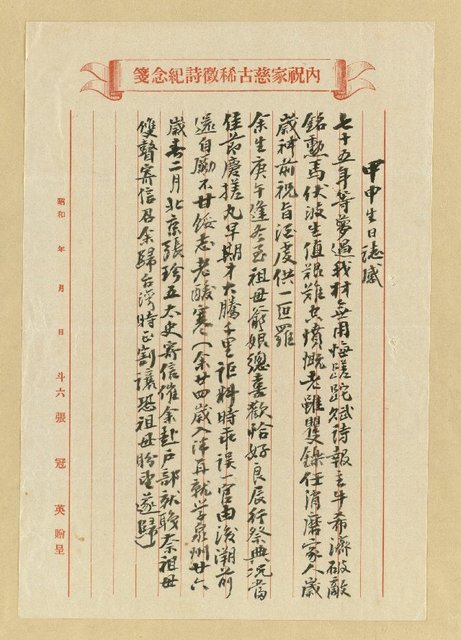 內祝家慈古稀徵詩紀念箋
甲申生日誌感
七十五年等夢過我材無用悔蹉跎賦詩報主年希濟破敵
銘勳馬伏波生值艱難安憤慨老雖矍鑠任消磨家人歲
歲神前祝旨酒虔供一叵羅
余生庚午逢冬至祖母爺娘總喜歡恰好良辰行祭典況當
佳節慶搓丸早期才大騰千里詎料時乖誤一官由後溯前
還自勵不甘餒志老酸寒(余廿四歲入泮再就學泉州廿六
歲春二月北京張珍五太史寄信催余赴戶部就職奈祖母
雙瞽寄信召余歸台灣時正割讓恐祖母盼望遂歸)
昭和 年 月 日 斗六 張冠英貽呈